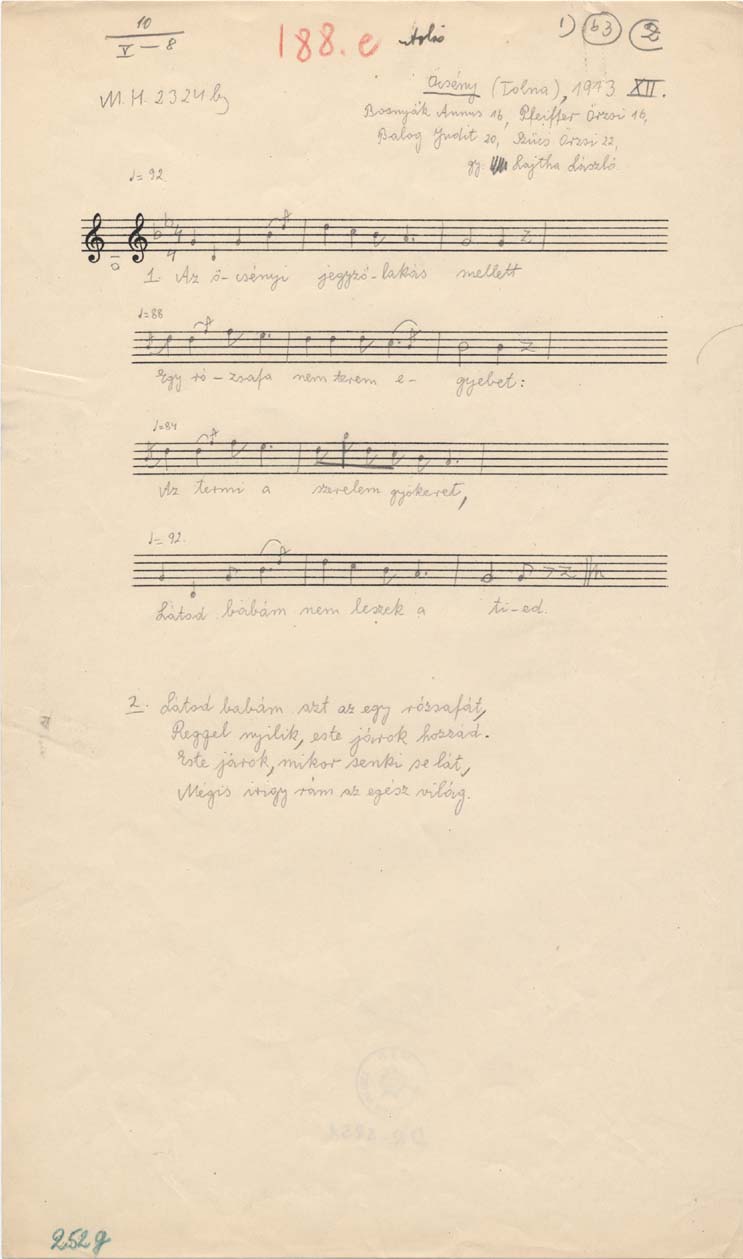 10
V – 8
188. e
1) b3 2
M. H. 2324 b)
Őcsény (Tolna), 1913 XII.
Bosnyák Annus 16, Pfeiffer Örzsi 16,
Balog Judit 20, Szűcs Örzsi 22,
gy. Lajtha László.
♩= 92
4
4
1. Az ő-csényi jegyző-lakás mellett
♩=88
Egy ró-zsafa nem terem e- gyebet:
♩=84
Az termi a szerelem gyökeret,
♩= 92.
Látod babám nem leszek a ti-ed.
2. Látod babám azt az egy rózsafát,
Reggel nyilik, este járok hozzád.
Este járok, mikor senki se lát,
Mégis irigy rám az egész világ.
252 g